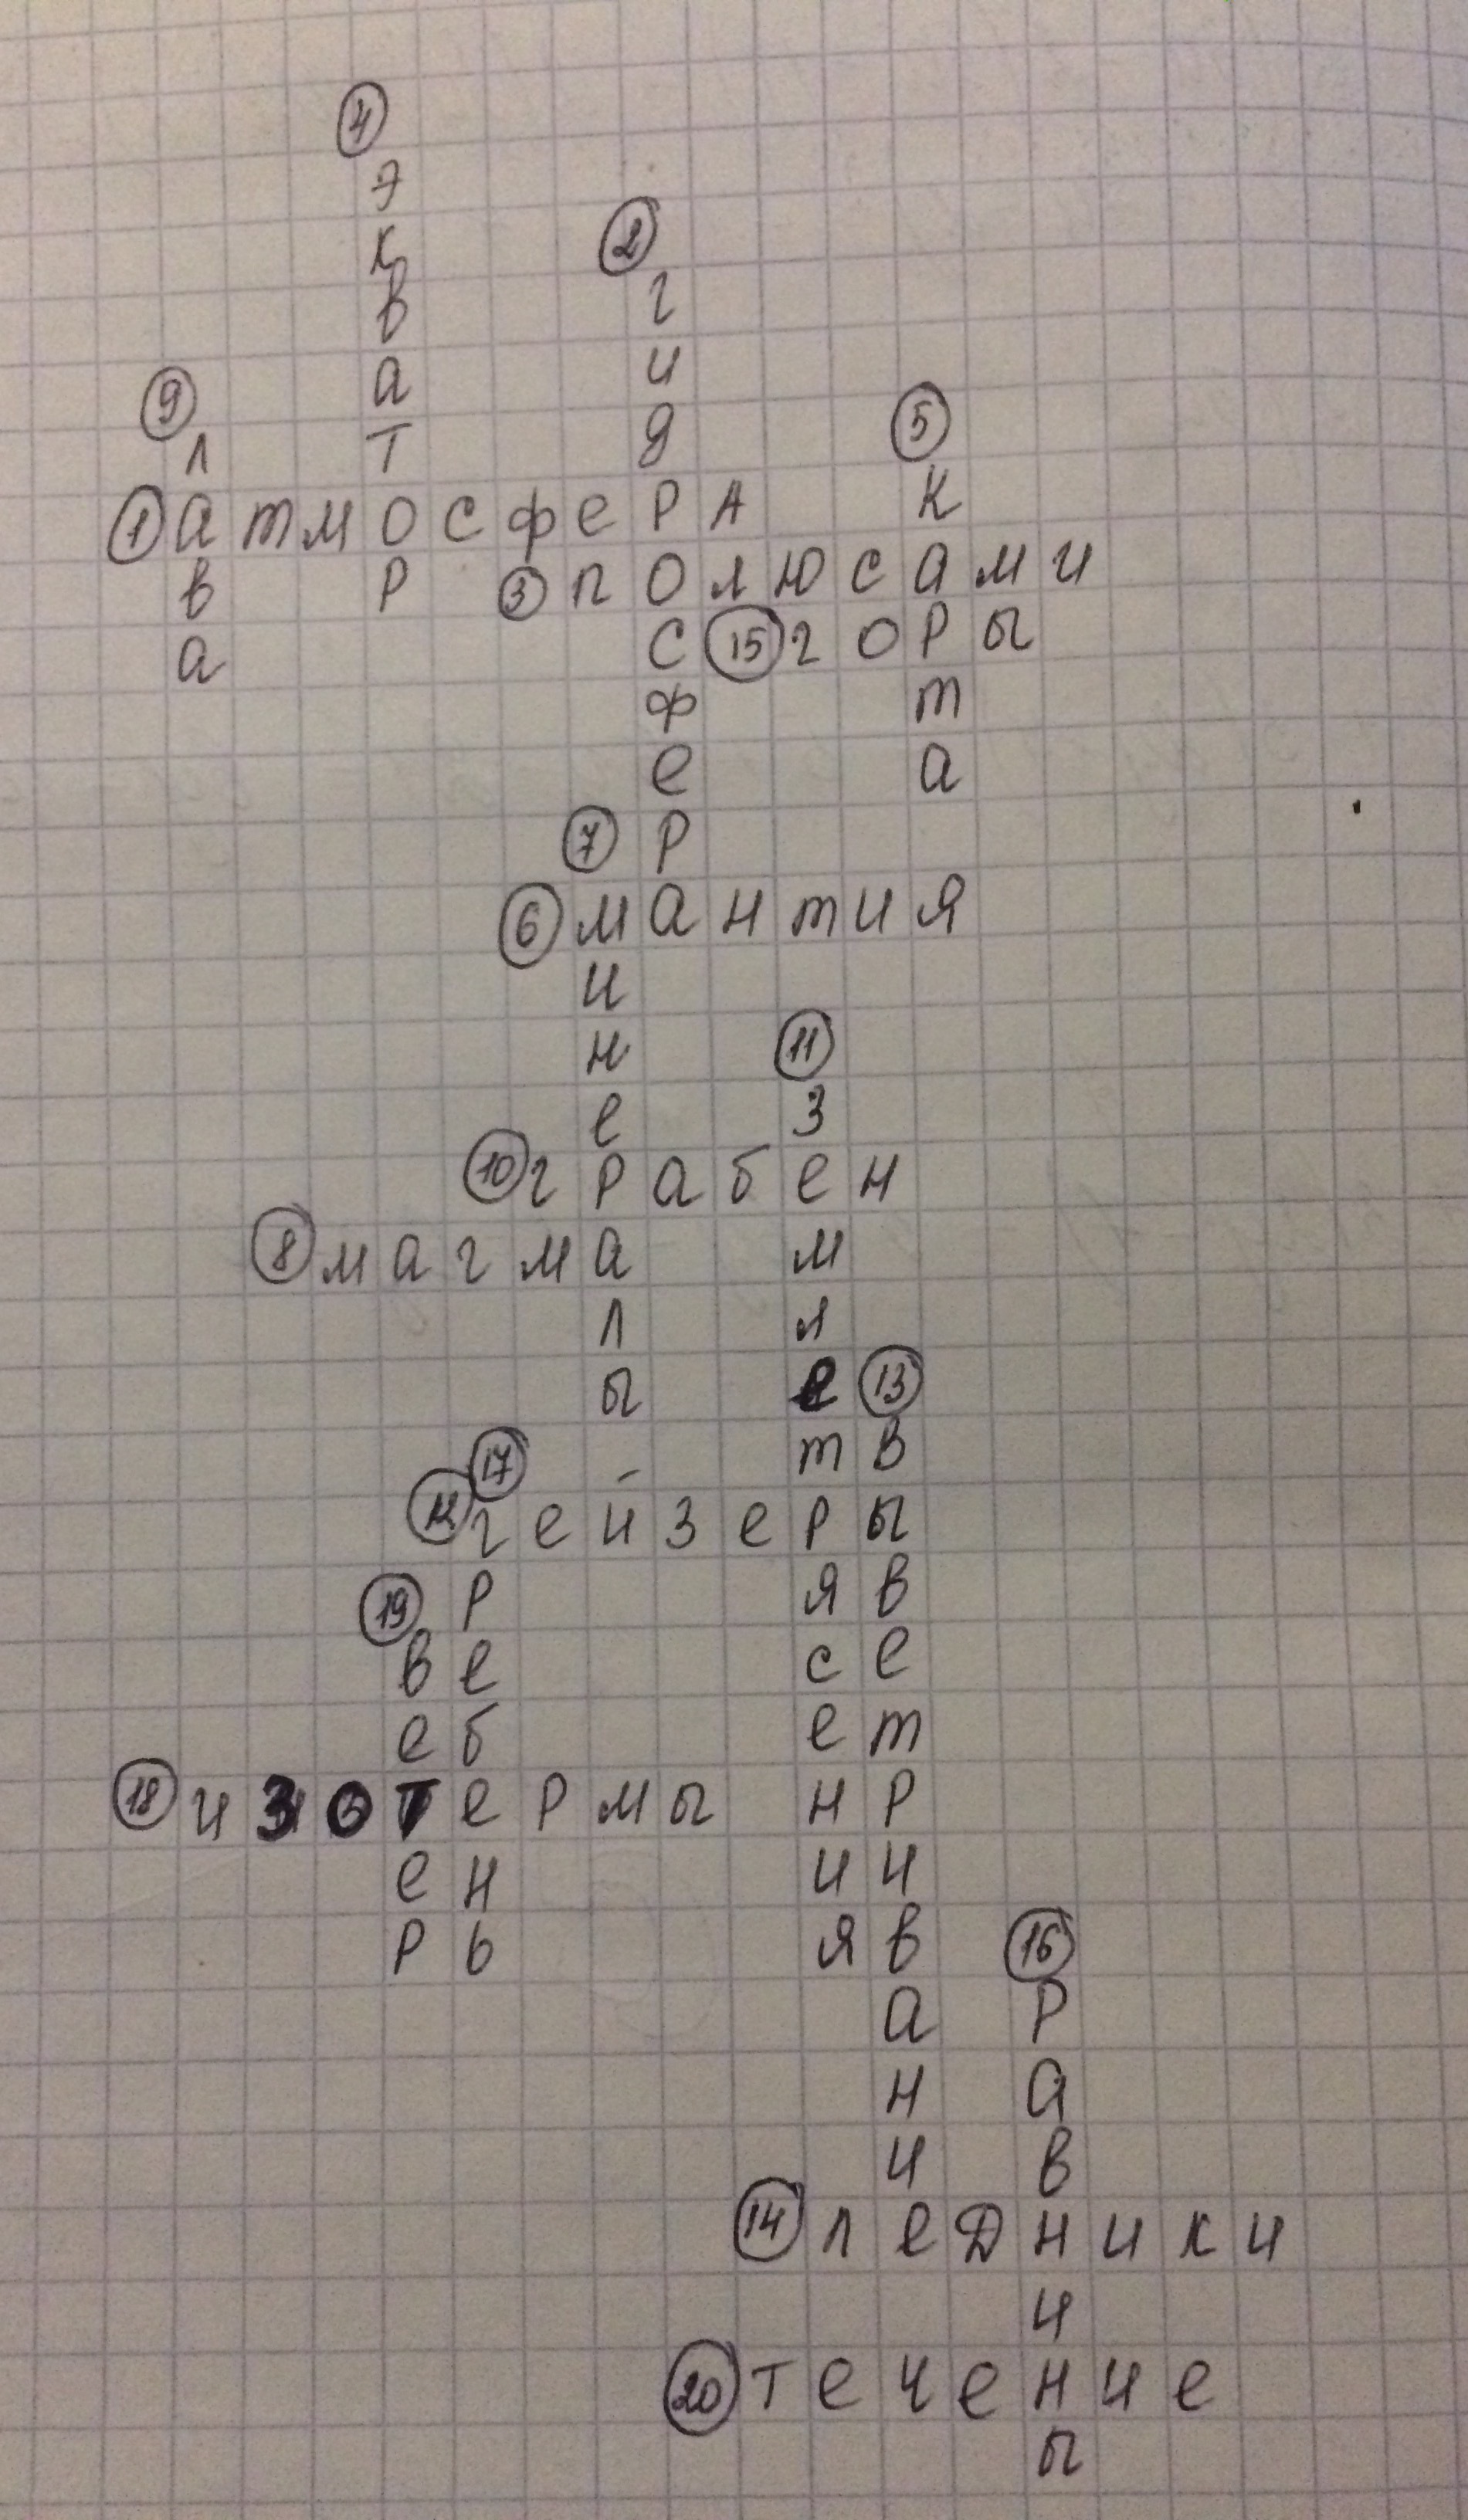 4 экватор
2 гидросфера
9 лава
5 карта
1 атмосферА
3 полюсами
15 горы
7 минералы
6 мантия
11 землетрясения
10 грабен
8 магма
13 выветривание
17 гребень
12 гейзеры
19 ветер
18 изотермы
16 равнины
14 ледники
20 течение